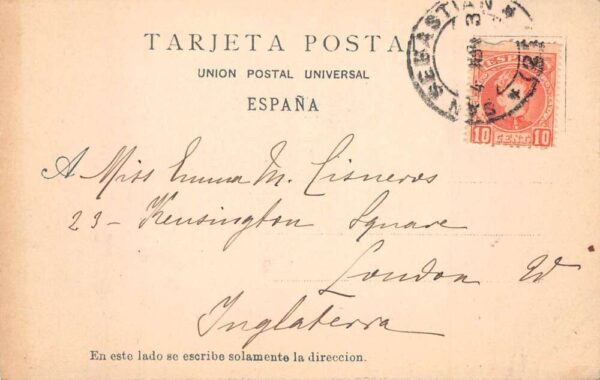 TARJETA POSTA
UNION POSTAL UNIVERSAL
ESPAÑA
SAN SEBASTIAN
ESPAÑA
10 CENT. 10
A Miss Emma M. Cisneros
23- Kensington Square
London W
Inglaterra
En este lado se escribe solamente la direccion.